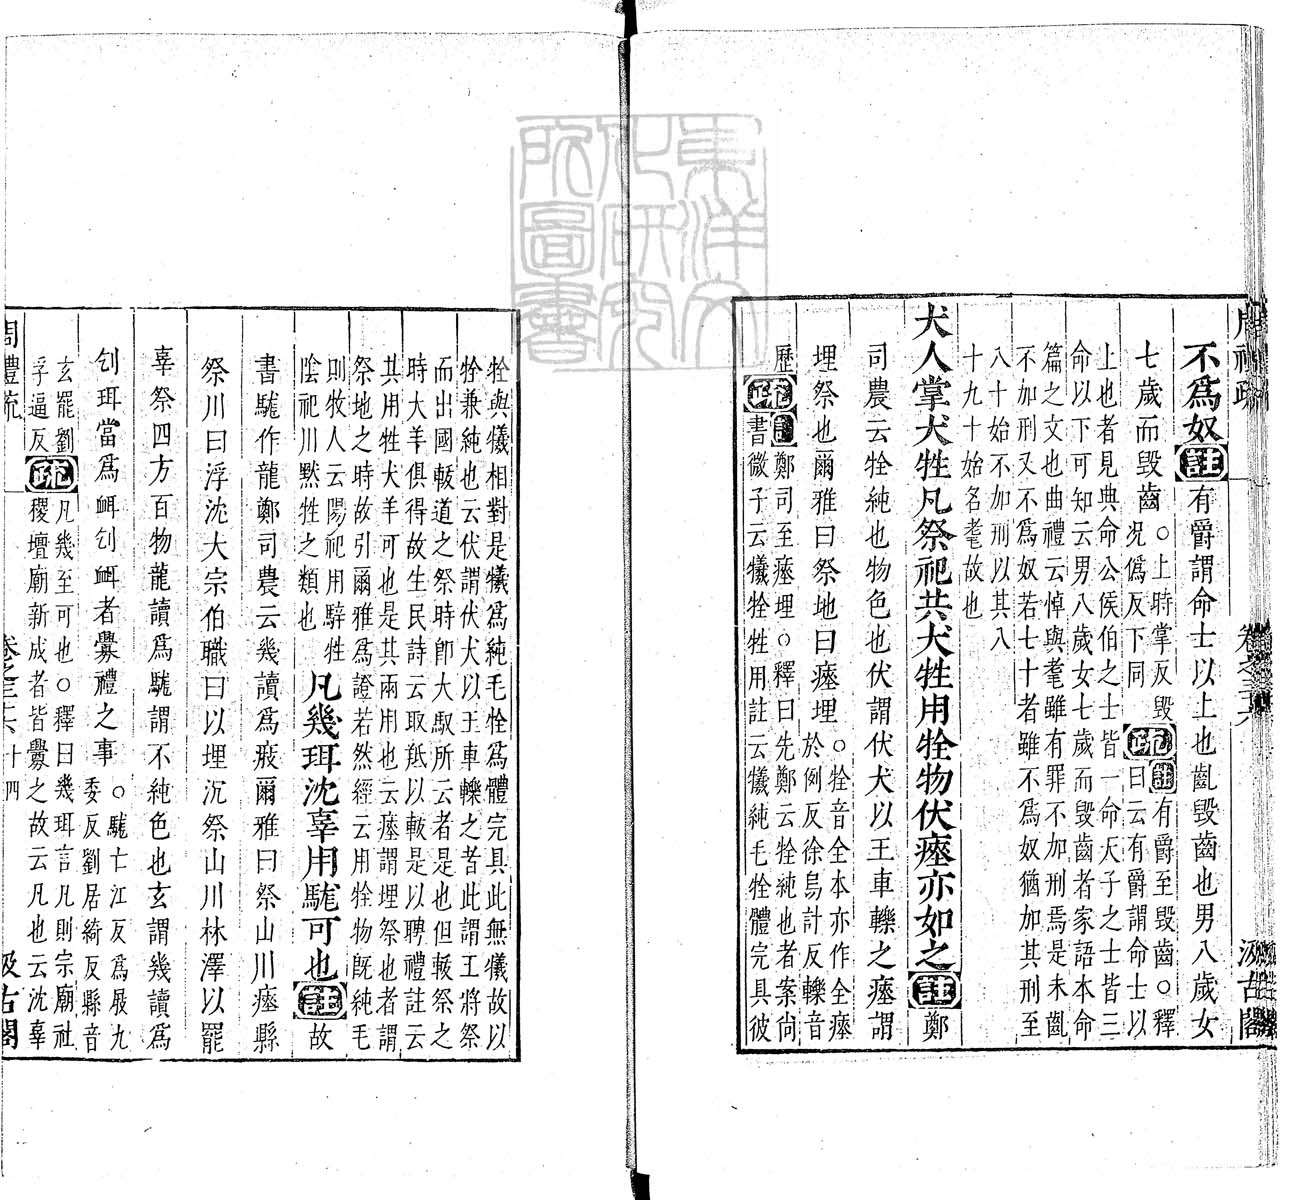 周禮疏
卷之三十六
汲古閣
不爲奴註有爵謂命士以上也齓毀齒也男八歲女
七歲而毀齒
○上時掌反毀
况僞反下同
疏
註有爵至毀齒○釋
曰云有爵謂命士以
上也者見典命公侯伯之士皆一命天子之士皆三
命以下可知云男八歲女七歲而毀齒者家語本命
篇之文也曲禮云悼與耄雖有罪不加刑焉是未齓
不加刑又不爲奴若七十者雖不爲奴猶加其刑至
八十始不加刑以其八
十九十始名耄故也
犬人掌犬牲凡祭祀共犬牲用牷物伏瘞亦如之註鄭
司農云牷純也物色也伏謂伏犬以王車轢之瘞謂
埋祭也爾雅曰祭地曰瘞埋
○牷音全本亦作全瘞
於例反徐烏計反轢音
歷
疏
註鄭司至瘞埋○釋曰先鄭云牷純也者案尚
書微子云犧牷牲用註云犧純毛牷體完具彼
牷與犧相對是犧爲純毛牷爲體完具此無犧故以
牷兼純也云伏謂伏犬以王車轢之者此謂王將祭
而出國軷道之祭時卽大馭所云者是也但軷祭之
時犬羊俱得故生民詩云取羝以軷是以聘禮註云
其用牲犬羊可也是其兩用也云瘞謂埋祭也者謂
祭地之時故引爾雅爲證若然經云用牷物旣純毛
則牧人云陽祀用騂牲
陰祀川黝牲之類也
凡幾珥沈辜用駹可也註故
書駹作龍鄭司農云幾讀爲庪爾雅曰祭山川瘞縣
祭川曰浮沈大宗伯職曰以埋沉祭山川林澤以罷
辜祭四方百物龍讀爲駹謂不純色也玄謂幾讀爲
刉珥當爲衈刉衈者釁禮之事
○駹亡江反爲展九
委反劉居綺反縣音
玄罷劉
孚逼反
疏
凡幾至可也○釋曰幾珥言凡則宗廟社
稷壇廟新成者皆釁之故云凡也云沈辜
周禮疏
卷之三十六
十四
汲古閣